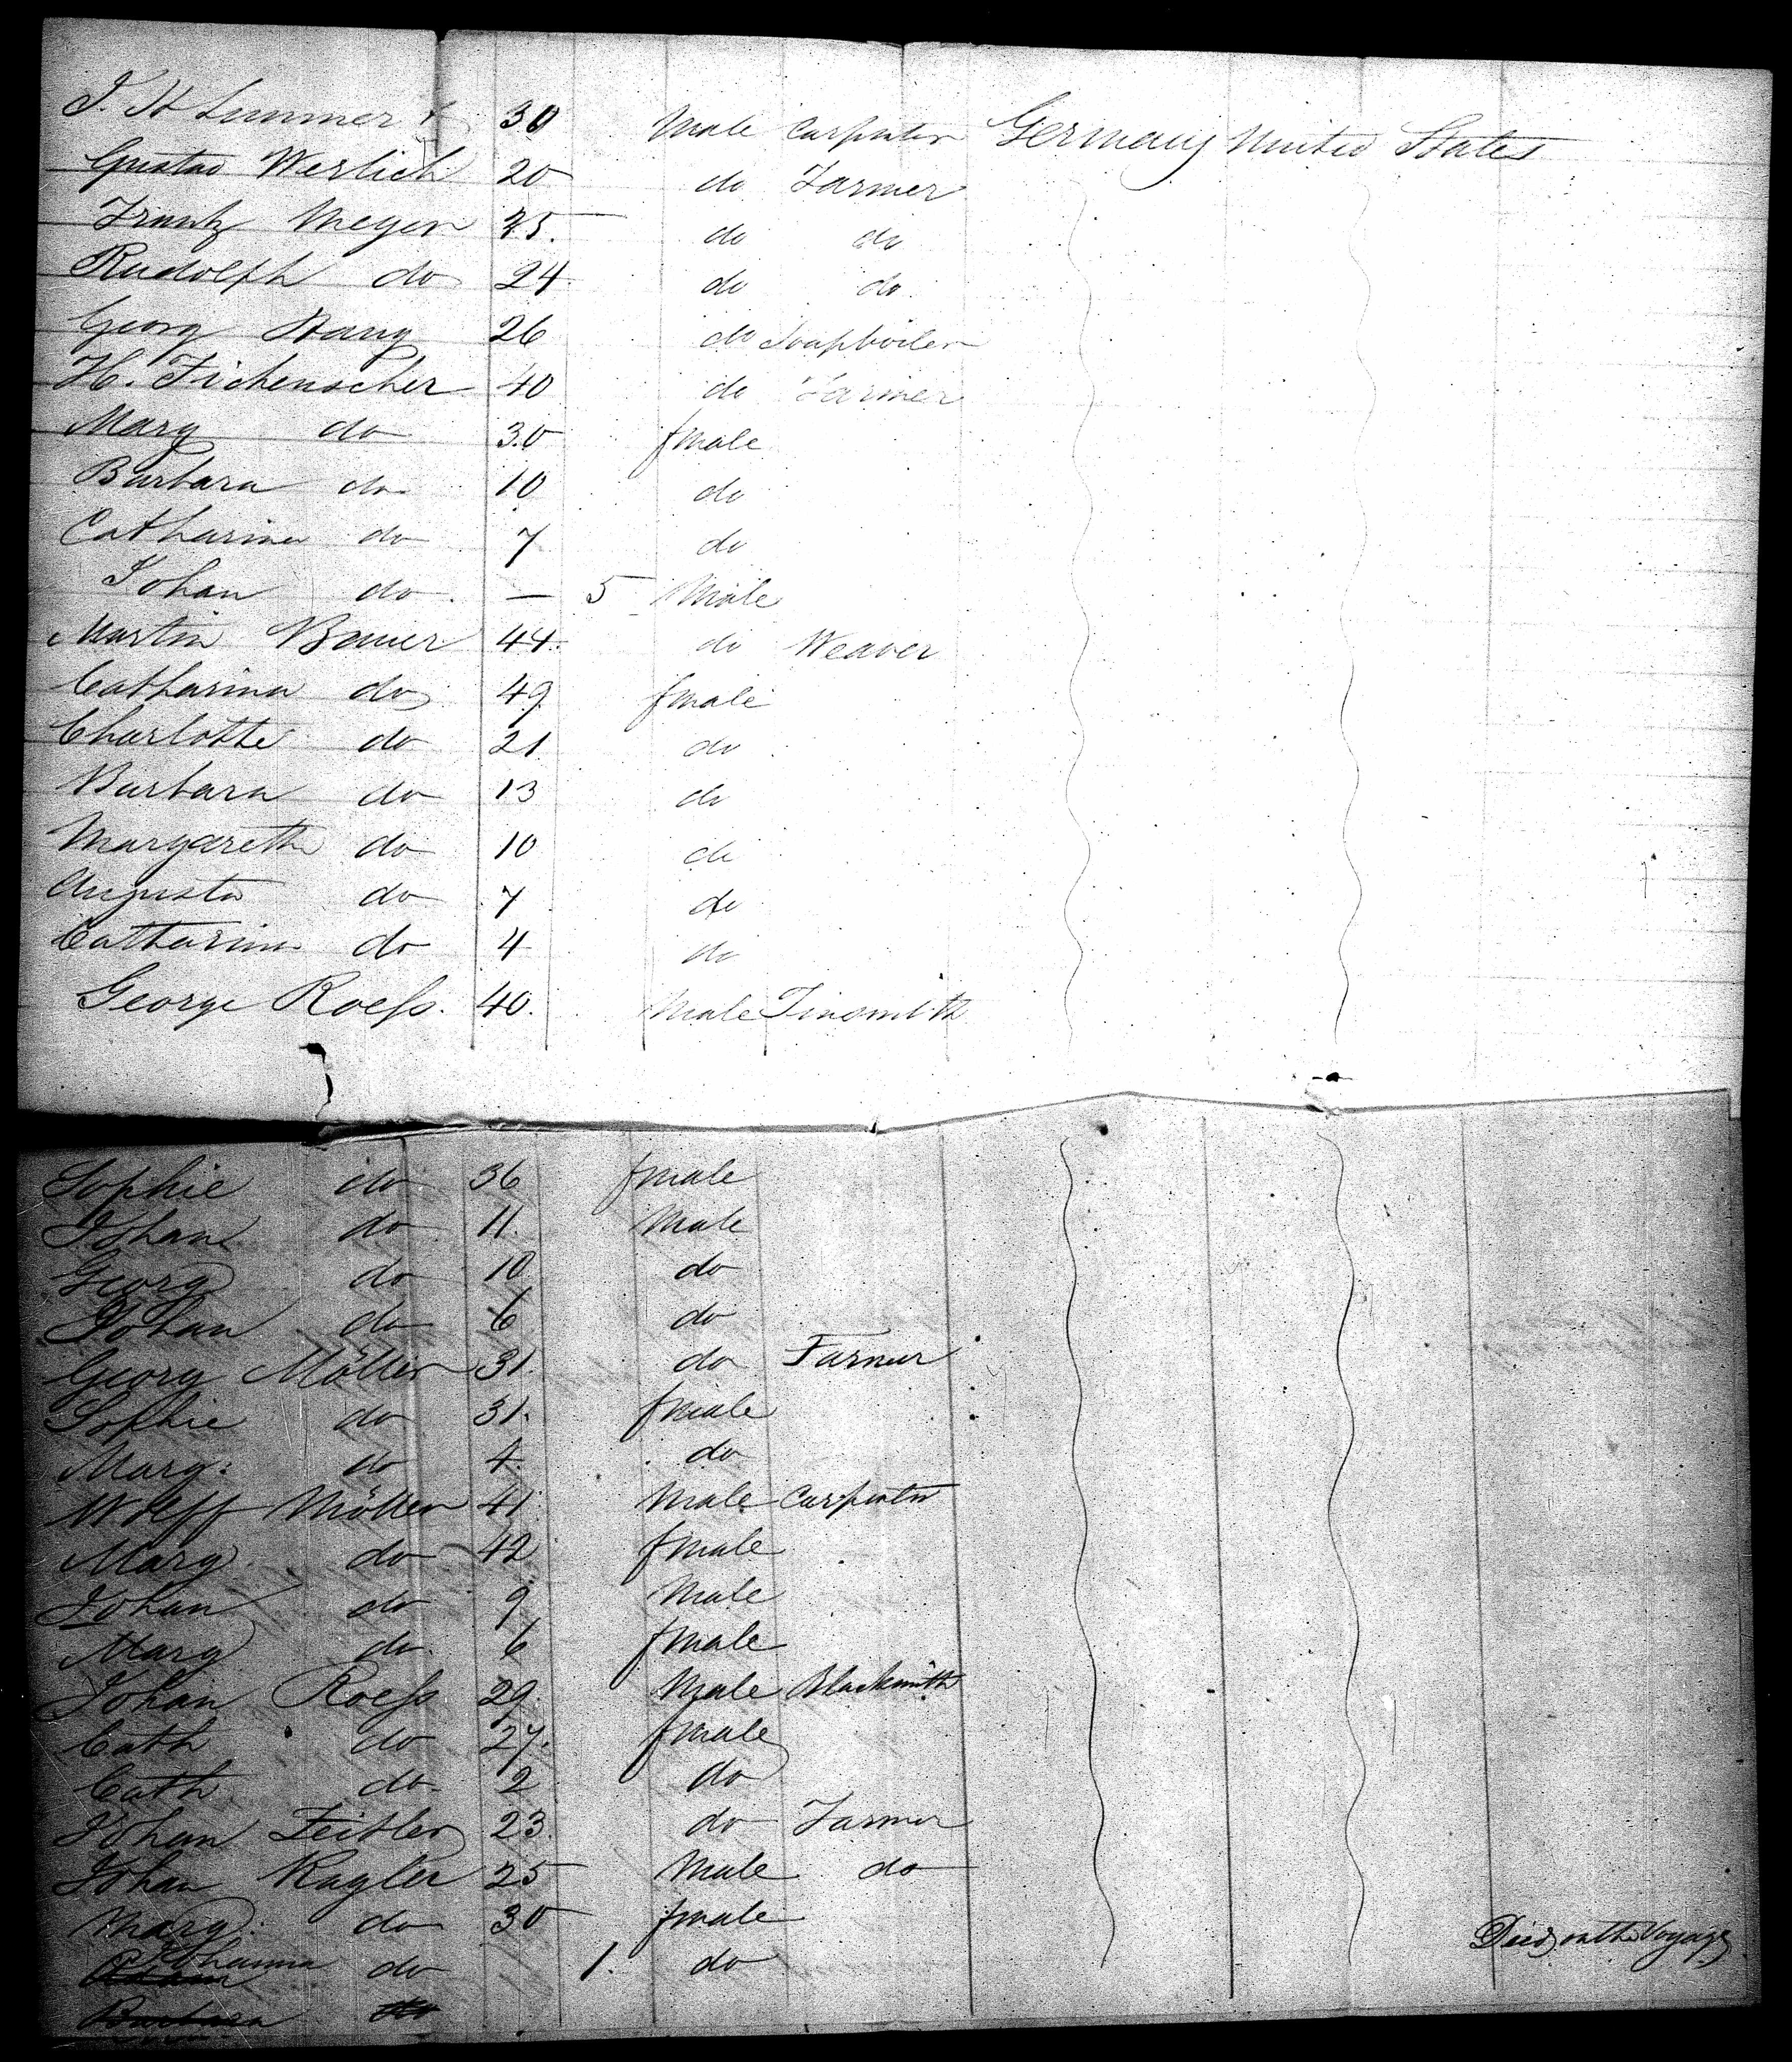 J. H Lummer 30 Male Carpenter Germany United States
Gustav Werlich 20 do Farmer
Frantz Meyer 25. do do
Rudolph do 24 do do
Georg Haug 26 do Soapboiler
H. Fichenscher 40 do Farmer
Marg do 30 fmale
Barbara do 10 do
Catharina do 7 do
Johan do. — 5 Male
Martin Bauer 44. do Weaver
Catharina do 49 fmale
Charlotte do 21 do
Barbara do 13 do
Margareth do 10 do
Augusta do 7 do
Catharina do 4 do
George Roess. 40. Male Tinsmith
Sophie do 36 fmale
Johan do 11. Male
Georg do 10 do
Johan do 6 do
Georg Möller 31. do Farmer
Sophie do 31. fmale
Marg: do 4. do
Wolff Möller 41 Male Carpenter
Marg. do 42 fmale
Johan do 9 Male
Marg do 6 fmale
Johan Roess 29. Male Blacksmith
Cath do 27. fmale
Cath. do 2 do
Johan Zeitler 23. do Farmer
Johan Kagler 25 Male do
Marg. do 30 fmale
Johanna do 1. do Died on the Voyage
Barbara do